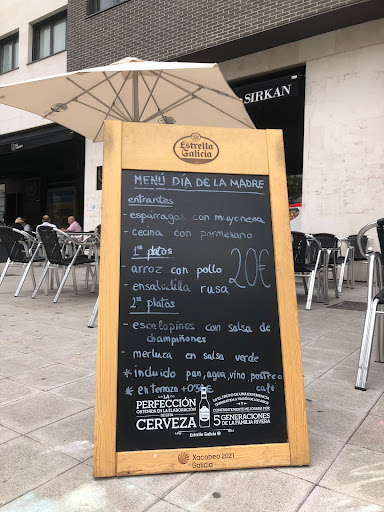 SIRKAN
Estrella
Galicia
MENÚ DÍA DE LA MADRE
entrantes
- espárragos con mayonesa
- cecina con parmesano
1ºs platos
20€
- arroz con pollo
- ensaladilla rusa
2ºs platos
- escalopines con salsa de
champiñones
- merluza en salsa verde
* incluido pan, agua, vino, postre o
café
* en terraza +0'50€
LA
PERFECCIÓN
OBTENIDA EN LA ELABORACIÓN
DE ESTA
CERVEZA
ES EL FRUTO DE UNA EXPERIENCIA
CONSTANTEMENTE MEJORADA POR
5 GENERACIONES
DE LA FAMILIA RIVERA
Estrella Galicia
Xacobeo 2021
Galicia